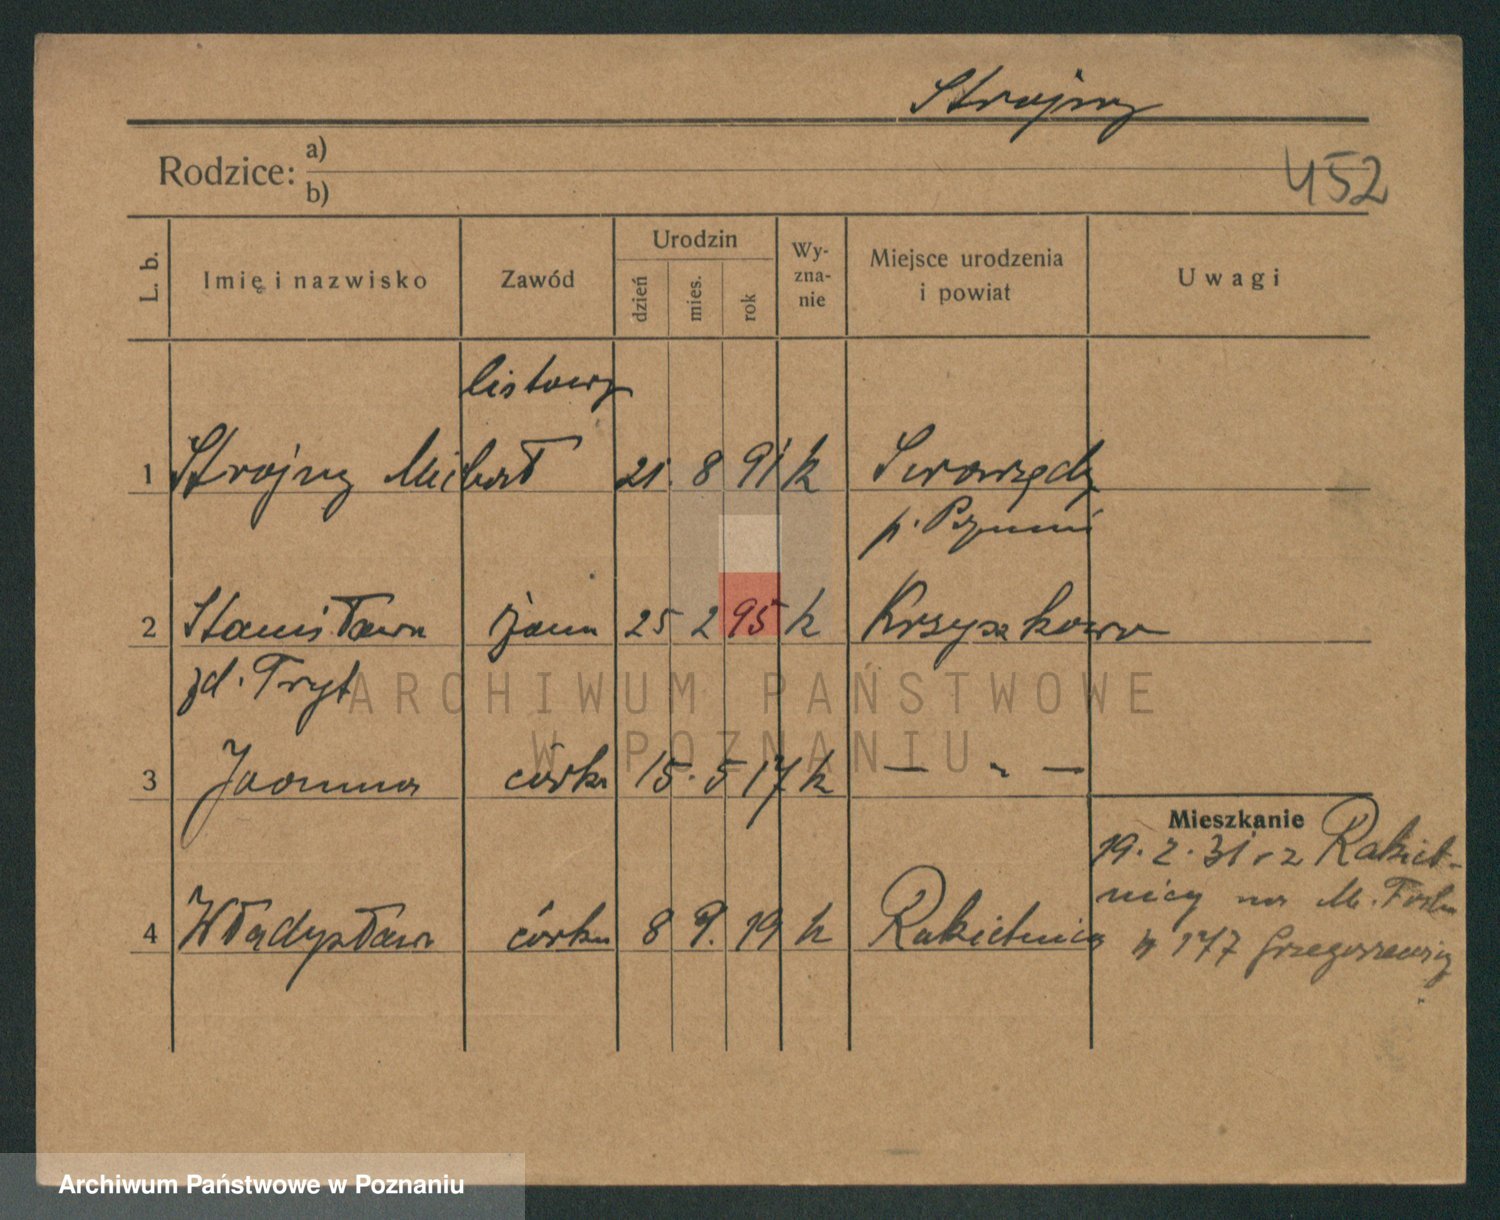 Strojny
Rodzice: a)
b)
452
L. b.
Imię i nazwisko
Zawód
Urodzin
dzień
mies.
rok
Wy-
zna-
nie
Miejsce urodzenia
i powiat
Uwagi
listowy
1 Strojny Michał 21. 8 91 k Swarzędz
p. Poznań
2 Stanisława żona 25 2 95 k Krzyszkowo
zd. Tryt
3 Joanna córka 15. 5 17 k — „ —
4 Władysława córka 8 9. 19 k Rakietnica
Mieszkanie
19. 2. 31 r z Rakiet-
nicy na M. Focha
177 Grzegorzewicz
ARCHIWUM PAŃSTWOWE
W POZNANIU
Archiwum Państwowe w Poznaniu